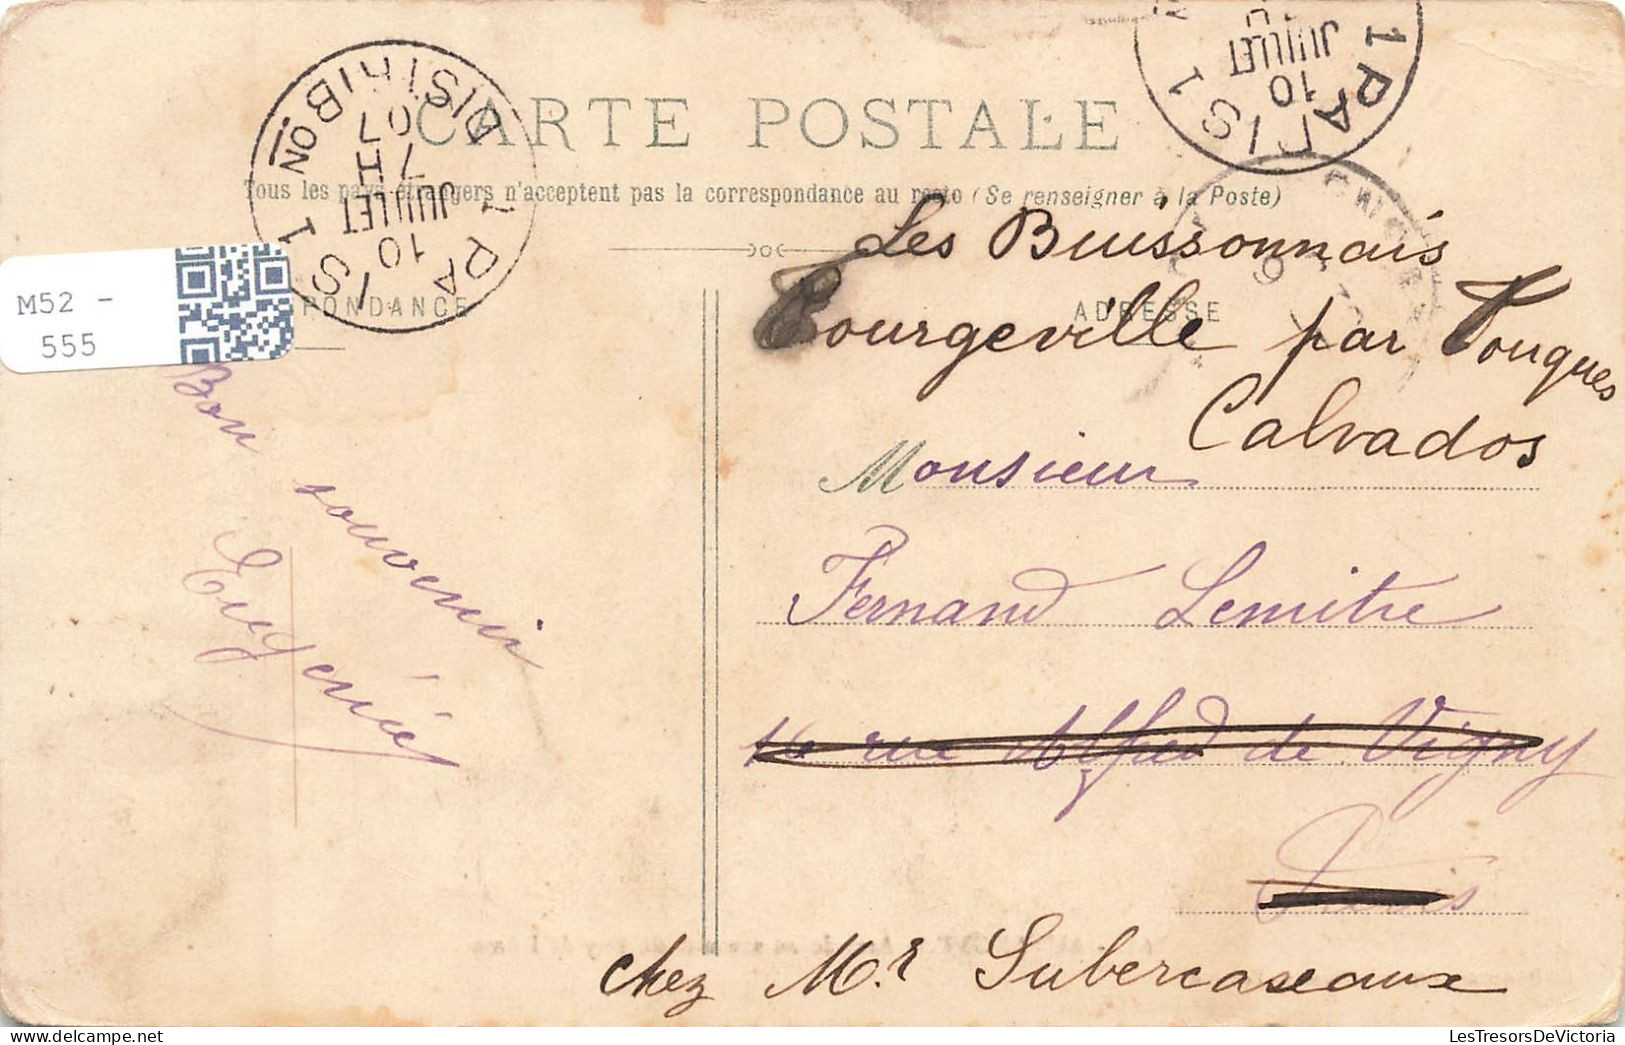 CARTE POSTALE
Tous les pays étrangers n'acceptent pas la correspondance au recto (Se renseigner à la Poste)
PARIS 1 DISTRIBON
10
JUILLET
07
1 PARIS 1
10
JUILLET
M52 -
555
PONDANCE
ADRESSE
Les Buissonnais
Tourgeville par Touques
Calvados
Monsieur
Fernand Lemitre
rue Alfred de Vigny
Paris
chez Mr. Subercaseaux
Bon souvenir
Eugénie
LesTresorsDeVictoria